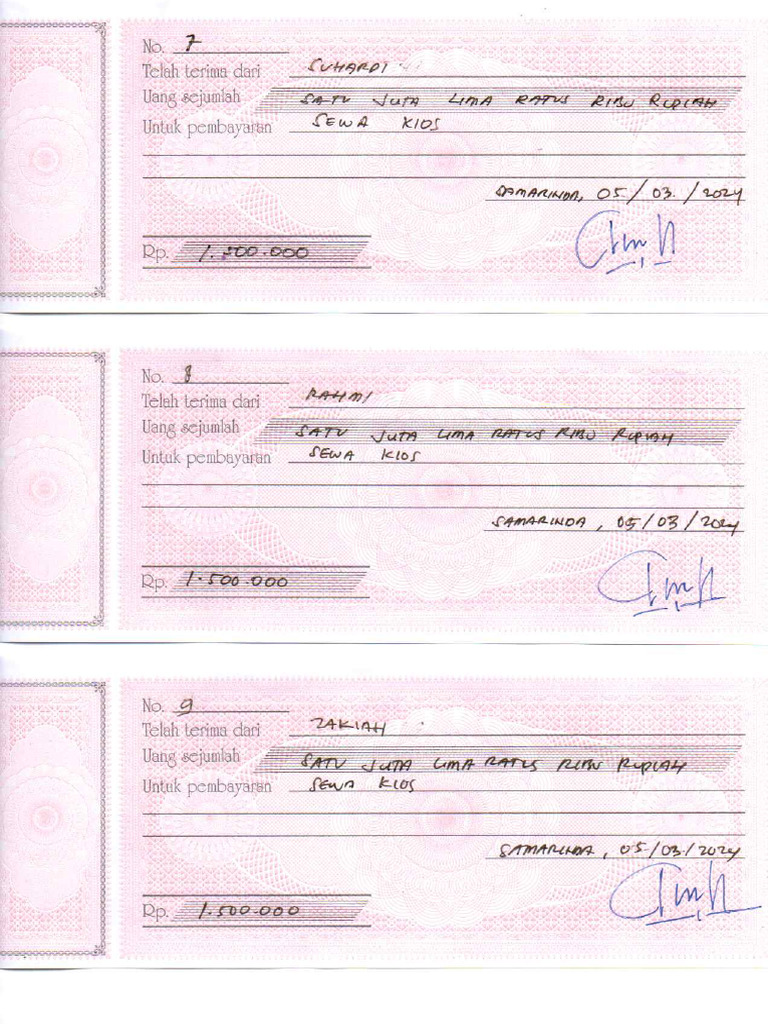 No. 7
Telah terima dari SUHARDI
Uang sejumlah SATU JUTA LIMA RATUS RIBU RUPIAH
Untuk pembayaran SEWA KIOS
SAMARINDA, 05/03/2024
Rp. 1.500.000
No. 8
Telah terima dari RAHMI
Uang sejumlah SATU JUTA LIMA RATUS RIBU RUPIAH
Untuk pembayaran SEWA KIOS
SAMARINDA, 05/03/2024
Rp. 1.500.000
No. 9
Telah terima dari ZAKIAH
Uang sejumlah SATU JUTA LIMA RATUS RIBU RUPIAH
Untuk pembayaran SEWA KIOS
SAMARINDA, 05/03/2024
Rp. 1.500.000